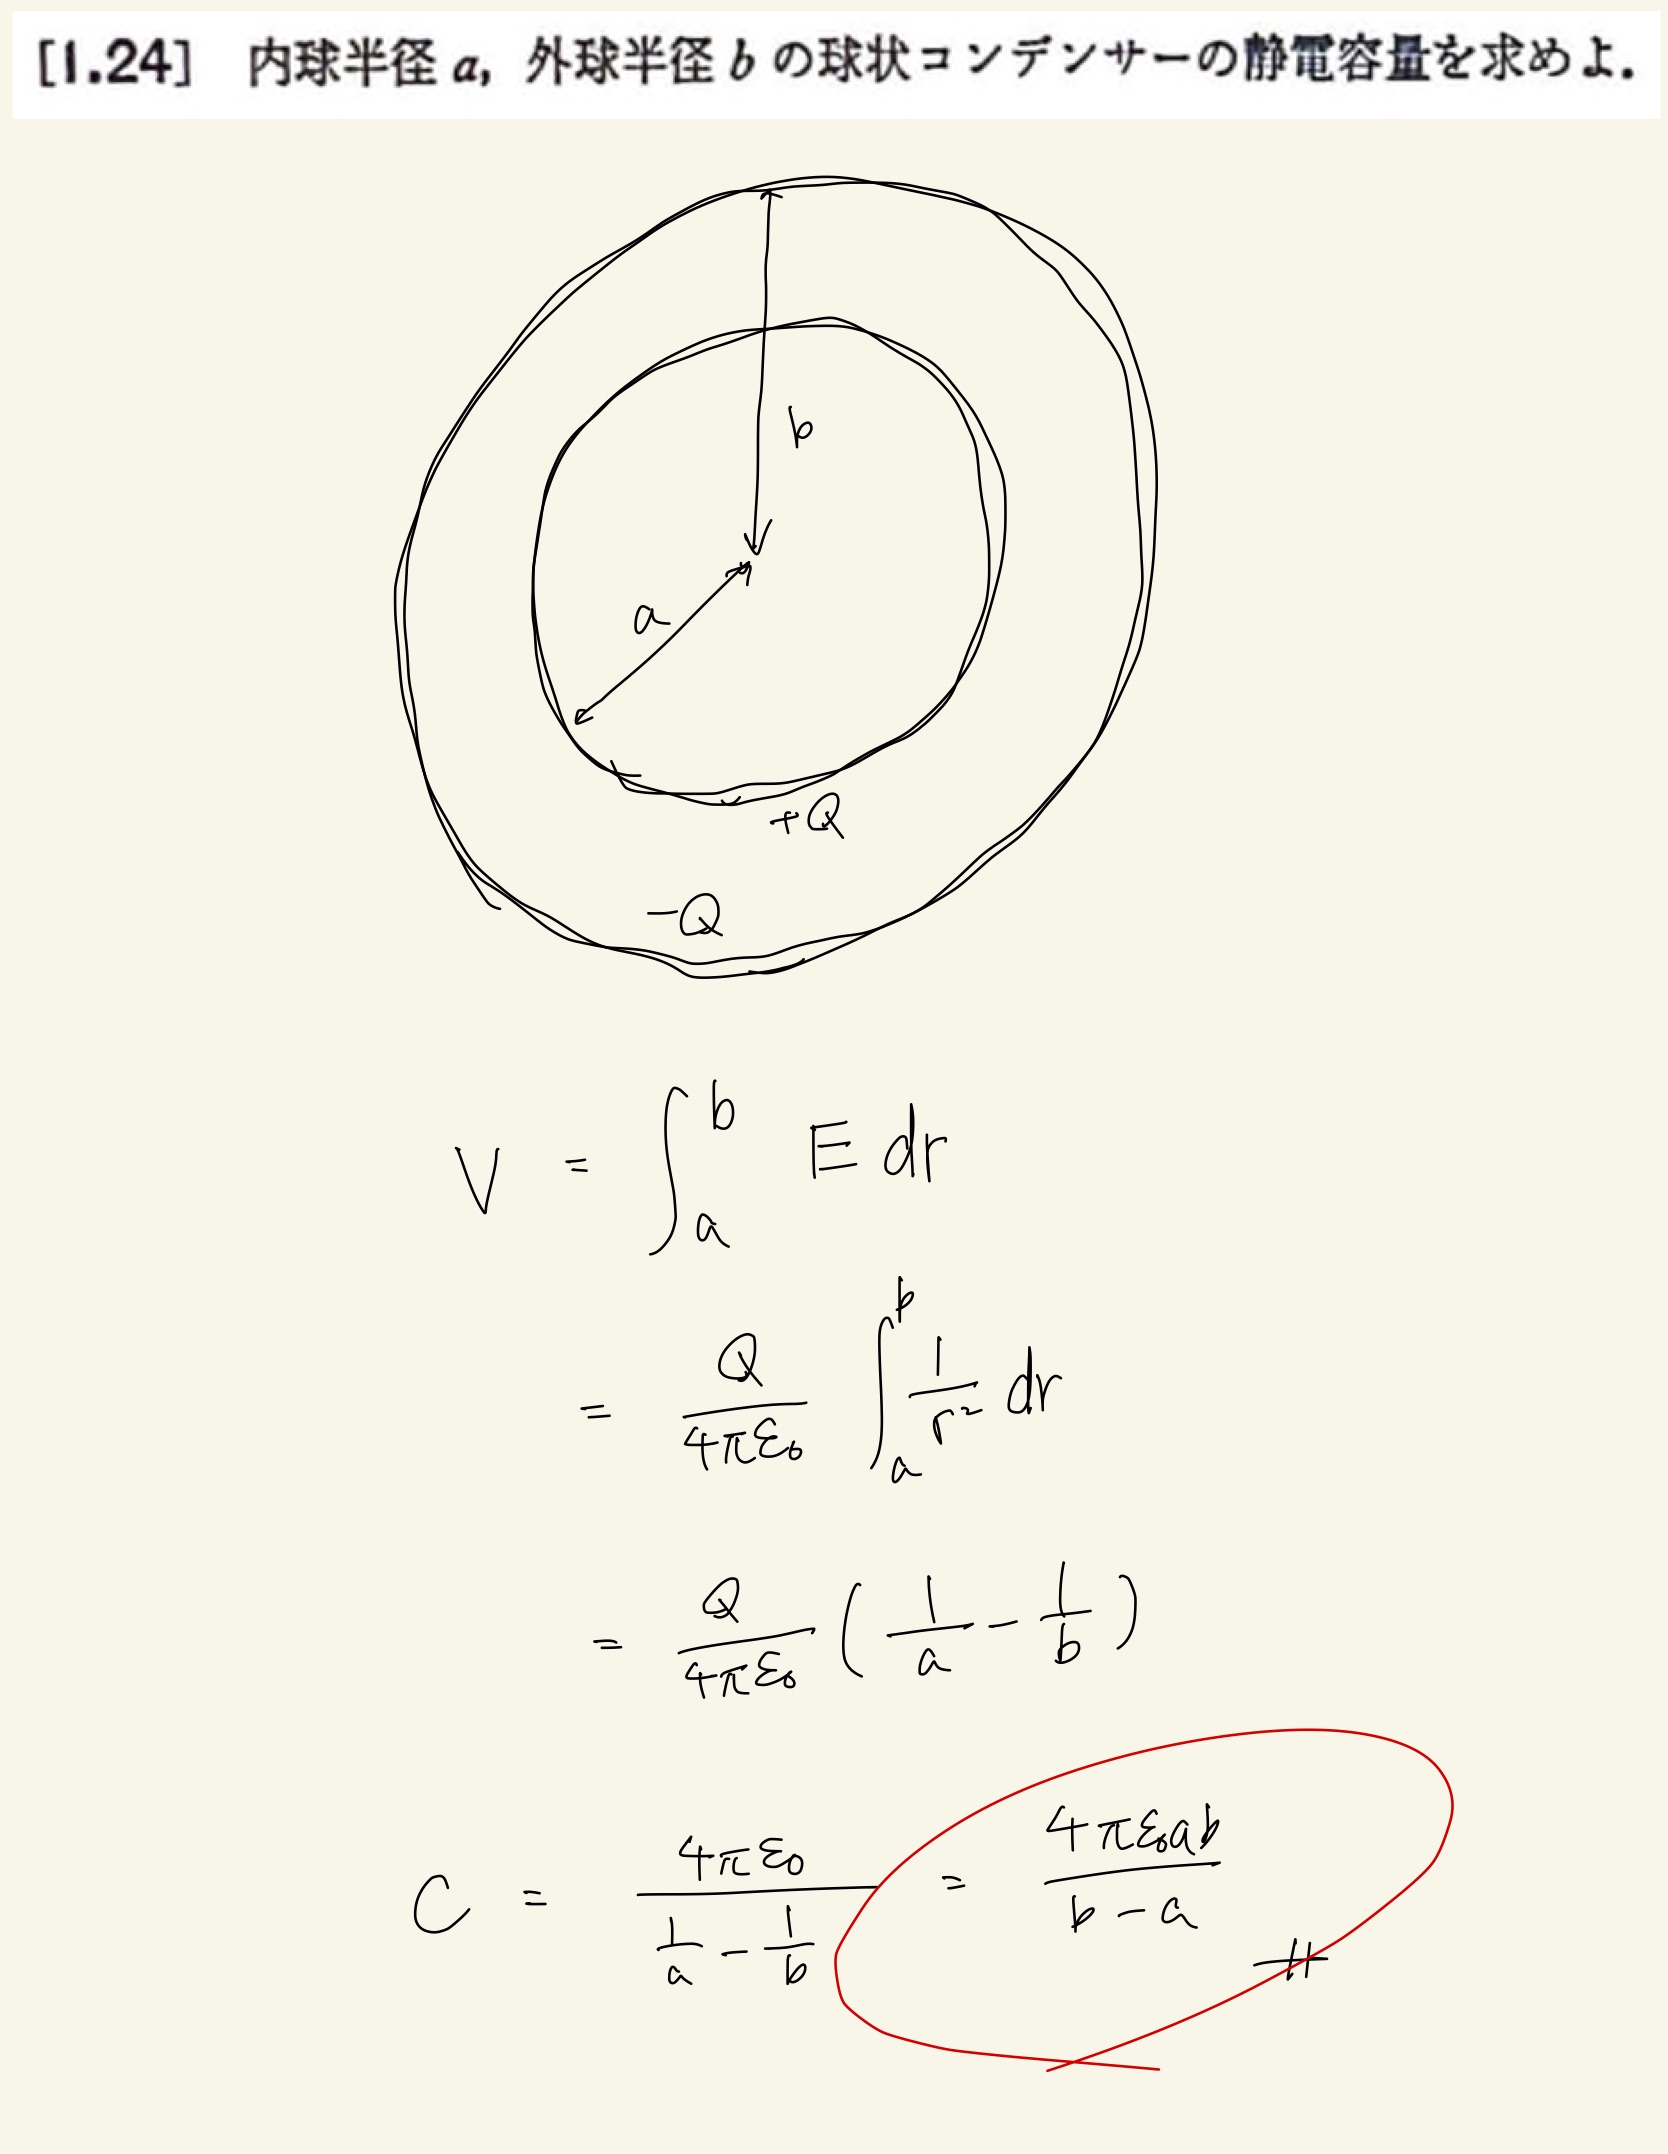 [1.24] 内球半径 a, 外球半径 b の球状コンデンサーの静電容量を求めよ.
b
a
+Q
-Q
V = ∫_a^b E dr
= Q/(4πε₀) ∫_a^b 1/r² dr
= Q/(4πε₀) (1/a - 1/b)
C = 4πε₀/(1/a - 1/b) = 4πε₀ab/(b-a) #